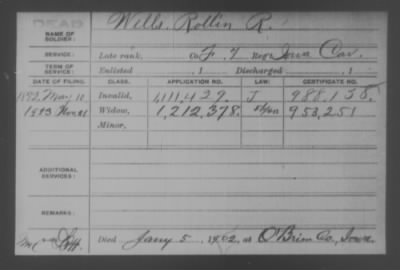 DEAD
Wells, Rollin R.
NAME OF SOLDIER:
SERVICE: Late rank, Co. F, 7 Reg't Iowa Cav.
TERM OF SERVICE: Enlisted , 1 Discharged , 1
DATE OF FILING. CLASS. APPLICATION NO. LAW: CERTIFICATE NO.
1892, May 10 Invalid, 1,111,429. J 988,138.
Widow, 1,212,378. 953,251
Minor,
ADDITIONAL SERVICES:
REMARKS:
Died Jany 5 at O'Brien Co., Iowa.